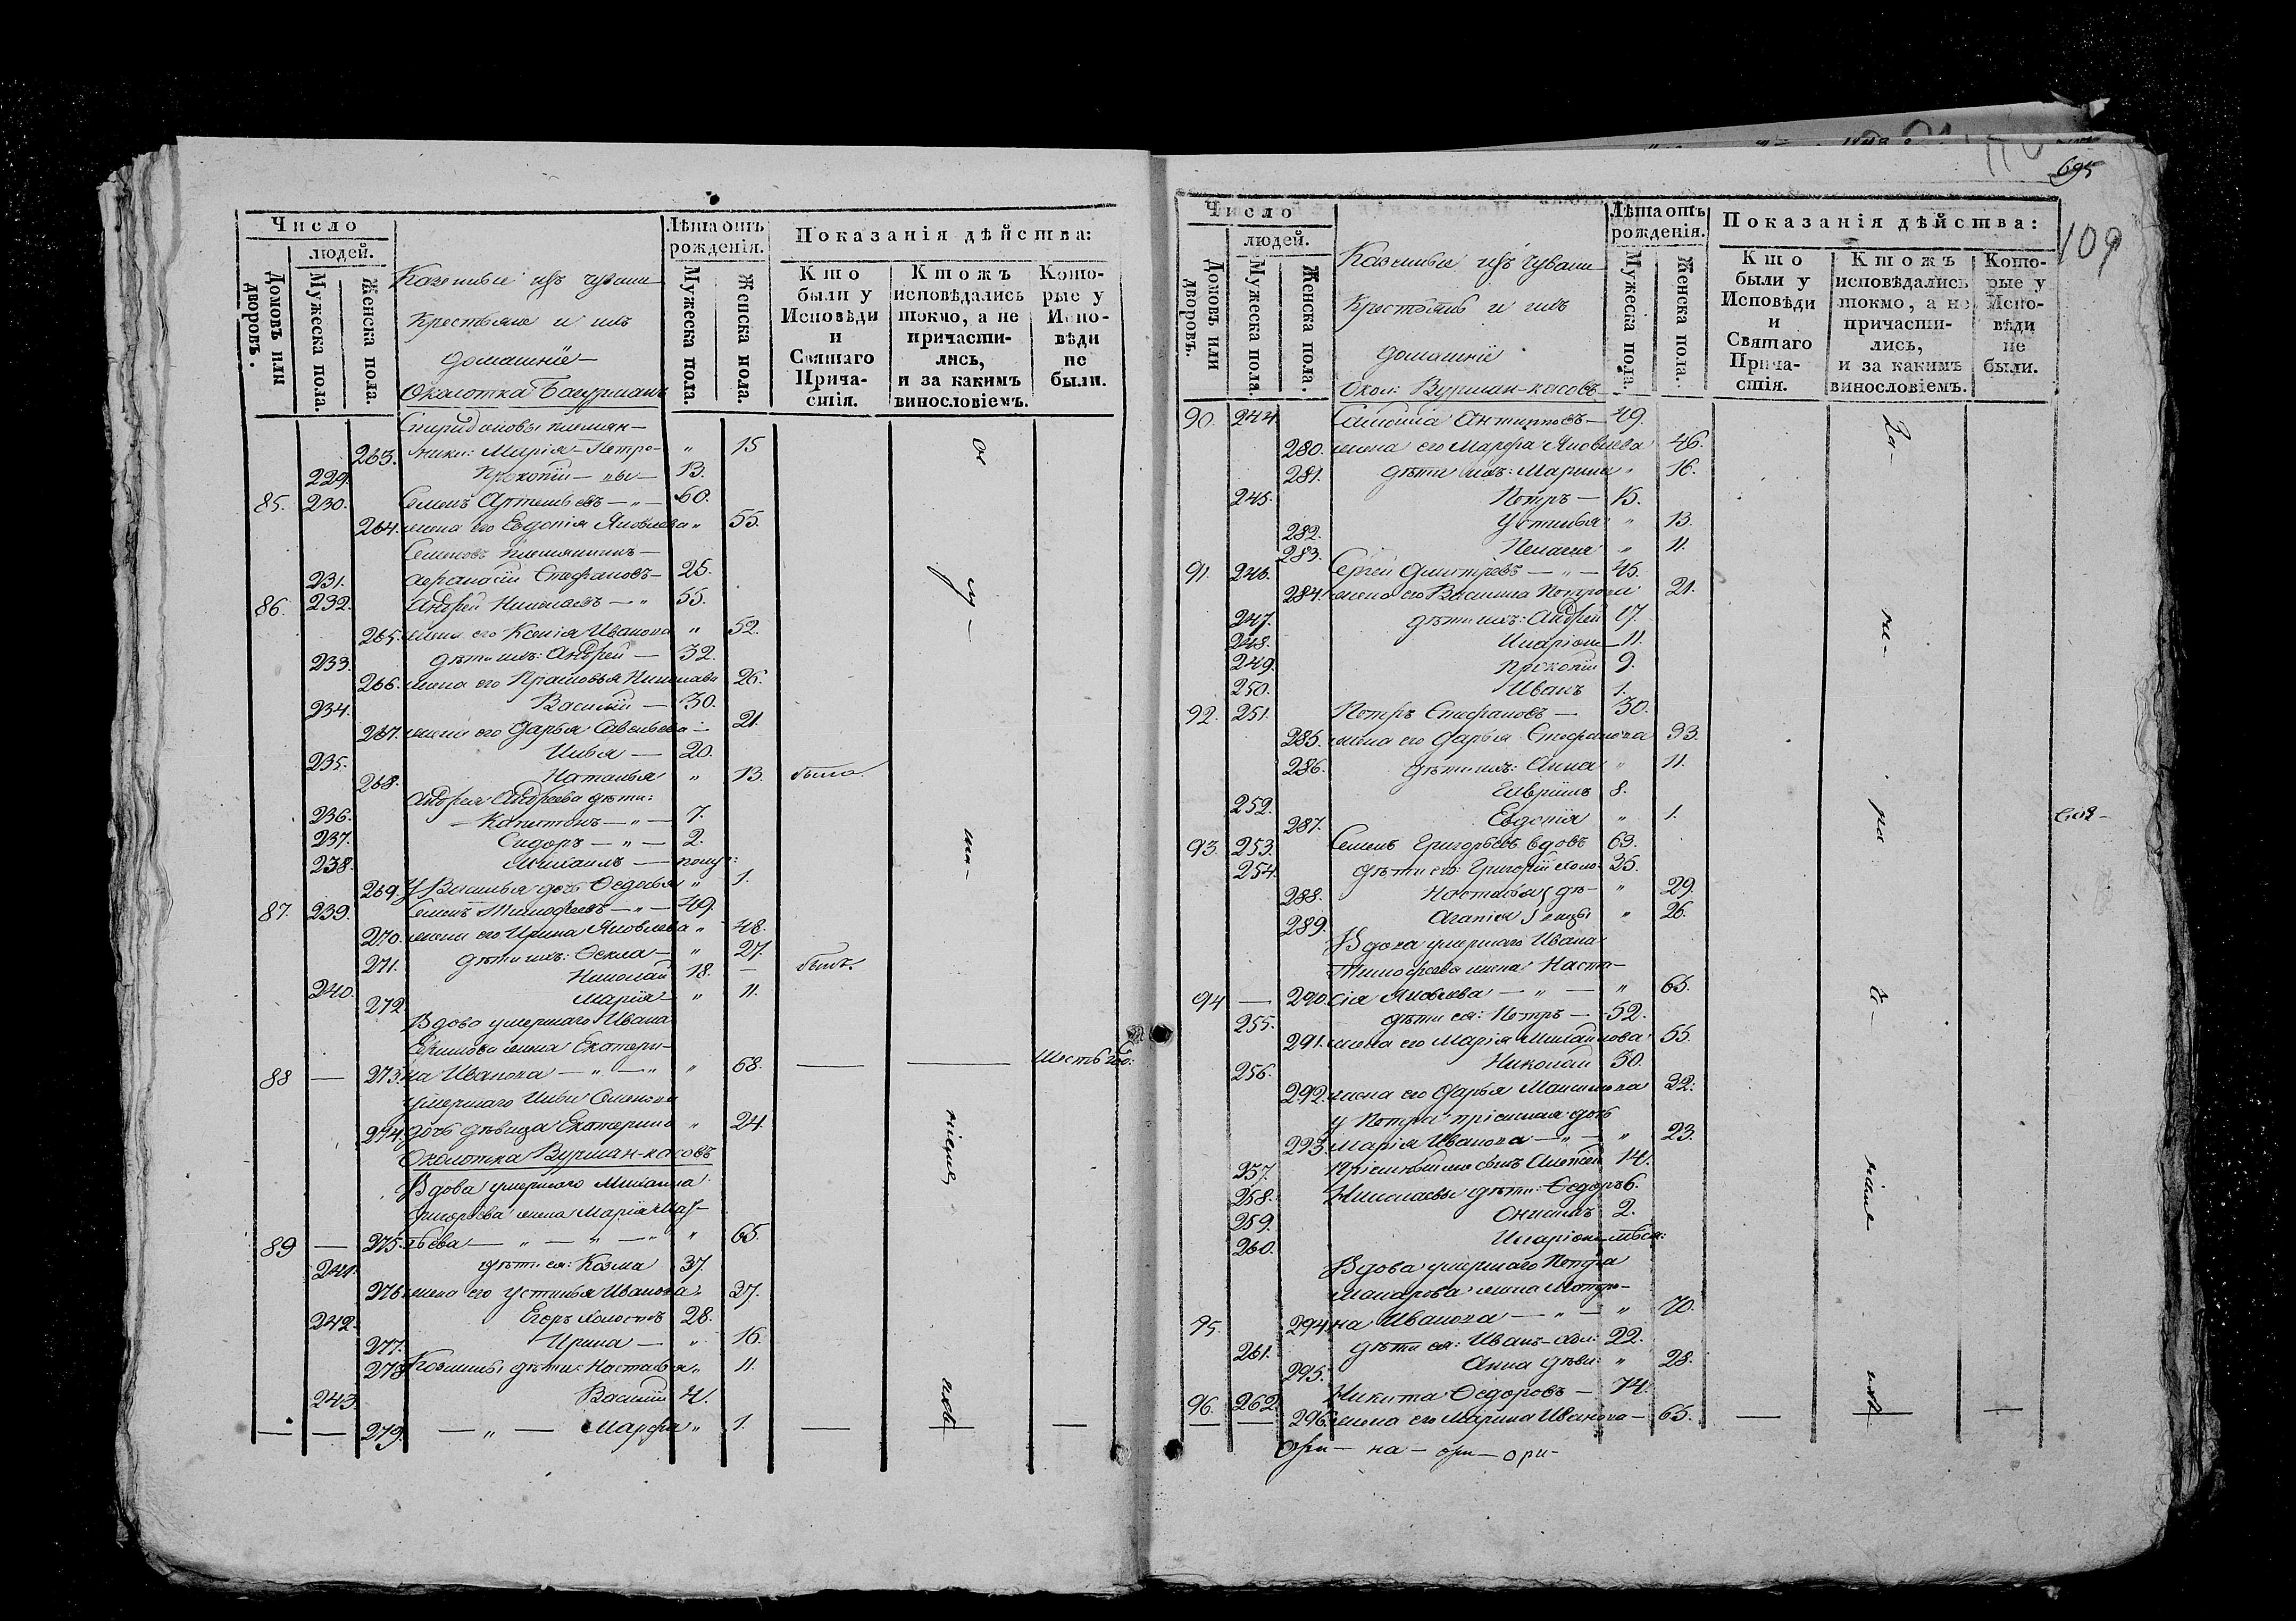 695
109
Число
людей.
Домовъ или дворовъ.
Мужеска пола.
Женска пола.
Казенные изъ чуваш
Крестьяне и ихъ
домашніе
Околотка
Лѣта отъ рожденія.
Мужеска пола.
Женска пола.
Показанія дѣйства:
Кто были у Исповѣди и Святаго Причастія.
Ктожъ исповѣдались токмо, а не причастились, и за какимъ винословіемъ.
Которые у Исповѣди не были.
Спиридоновы племян-
263. ники: Марія Петро- " 15
229. Прокопій — "вы — 13.
85. 230. Семенъ Артемьевъ — " — 60.
264. жена его Евдокія Яковлева " 55.
Семеновъ племянникъ —
231. Афанасій Стефановъ — 25.
86. 232. Андрей Николаевъ — " 55.
265. жена его Ксенія Иванова " 52.
233. дѣти ихъ: Андрей — 32.
266. жена его Прасковья Николаева 26.
234. Василій — 30.
267. жена его Дарья Савельева — 21.
235. Илья — 20.
268. Наталья " 13. была.
Андрея Андреева дѣти:
236. — Капитонъ — " — 7.
237. Сидоръ — " — 2.
238. Михаилъ —
269. У Василья дочь Федосья " 1.
87. 239. Семенъ Тимофеевъ — " — 49.
270. жена его Ирина Яковлева " 48.
271. дѣти ихъ: Фекла — " 27.
240. Николай 18. — былъ.
272 Марія " 11.
Вдова умершаго Ивана
жена Екатери-
88 — 273. на Иванова — " — " " 68. —— ——
умершаго Ильи Семенова
274. дочь дѣвица Екатерина " 24.
Околотка Вурман-касовъ
Вдова умершаго Михаила
Григорьева жена Марія Мат-
89 — 275. ѣева — " — " — " " 65.
241. дѣти ея: Козма 37.
276. жена его Устинья Иванова " 37.
242. Егоръ холостъ 28.
277. Ирина — " 16.
278. Козмины дѣти: Настасья " 11.
243. Василій 4.
— — 279. — " — Марфа " 1. — —
Число
людей.
Домовъ или дворовъ.
Мужеска пола.
Женска пола.
Казенные изъ чуваш
Крестьяне и ихъ
домашніе
Окол: Вурман-касовъ
Лѣта отъ рожденія.
Мужеска пола.
Женска пола.
Показанія дѣйства:
Кто были у Исповѣди и Святаго Причастія.
Ктожъ исповѣдались токмо, а не причастились, и за какимъ винословіемъ.
Которые у Исповѣди не были.
90. 244. Антиповъ — 49.
280. жена его Марфа Яковлева 46.
281. дѣти ихъ: Марина " 16.
245. Петръ — 15.
282. Устинья " 13.
283. Пелагея " 11.
91. 246. Сергей Дмитревъ — " — 45.
284. жена его Василиса Петрова 21.
247. дѣти ихъ: Андрей 17.
248. Иларіонъ 11.
249. Прокопій 9.
250. Иванъ 1.
92. 251. Петръ Стефановъ — 30.
285. жена его Дарья Стефанова 33.
286. дѣти ихъ: Анна " 11.
252. Гаврiилъ 8.
287. Евдокія " 1.
93. 253. Семенъ Григорьевъ вдовъ 63.
254. дѣти его: Григорій холо- 35.
288. Настасья дѣ- " 29.
289. Агапія вицы " 26.
Вдова умершаго Ивана
Тимофеева жена Наста-
94 — 290. сія Яковлева — " — " 65.
255. дѣти ея: Петръ — 52.
291. жена его Марія Михайлова 55.
256. Николай 30.
292. жена его Дарья Максимова 32.
у Петра пріемная дочь
293. Марія Иванова — " — " 23.
257. сынъ Алексей 14.
258. Николаевы дѣти: Федоръ 6.
259. 2.
260. Иларіонъ
Вдова умершаго Петра
Макарова жена Матре-
95. 294. на Иванова — " — " 70.
261. дѣти ея: Иванъ 22.
295. Анна дѣви: " 28.
96. 262. Никита Федоровъ — 74.
— — 296. жена его Марина Иванова — 65. — —